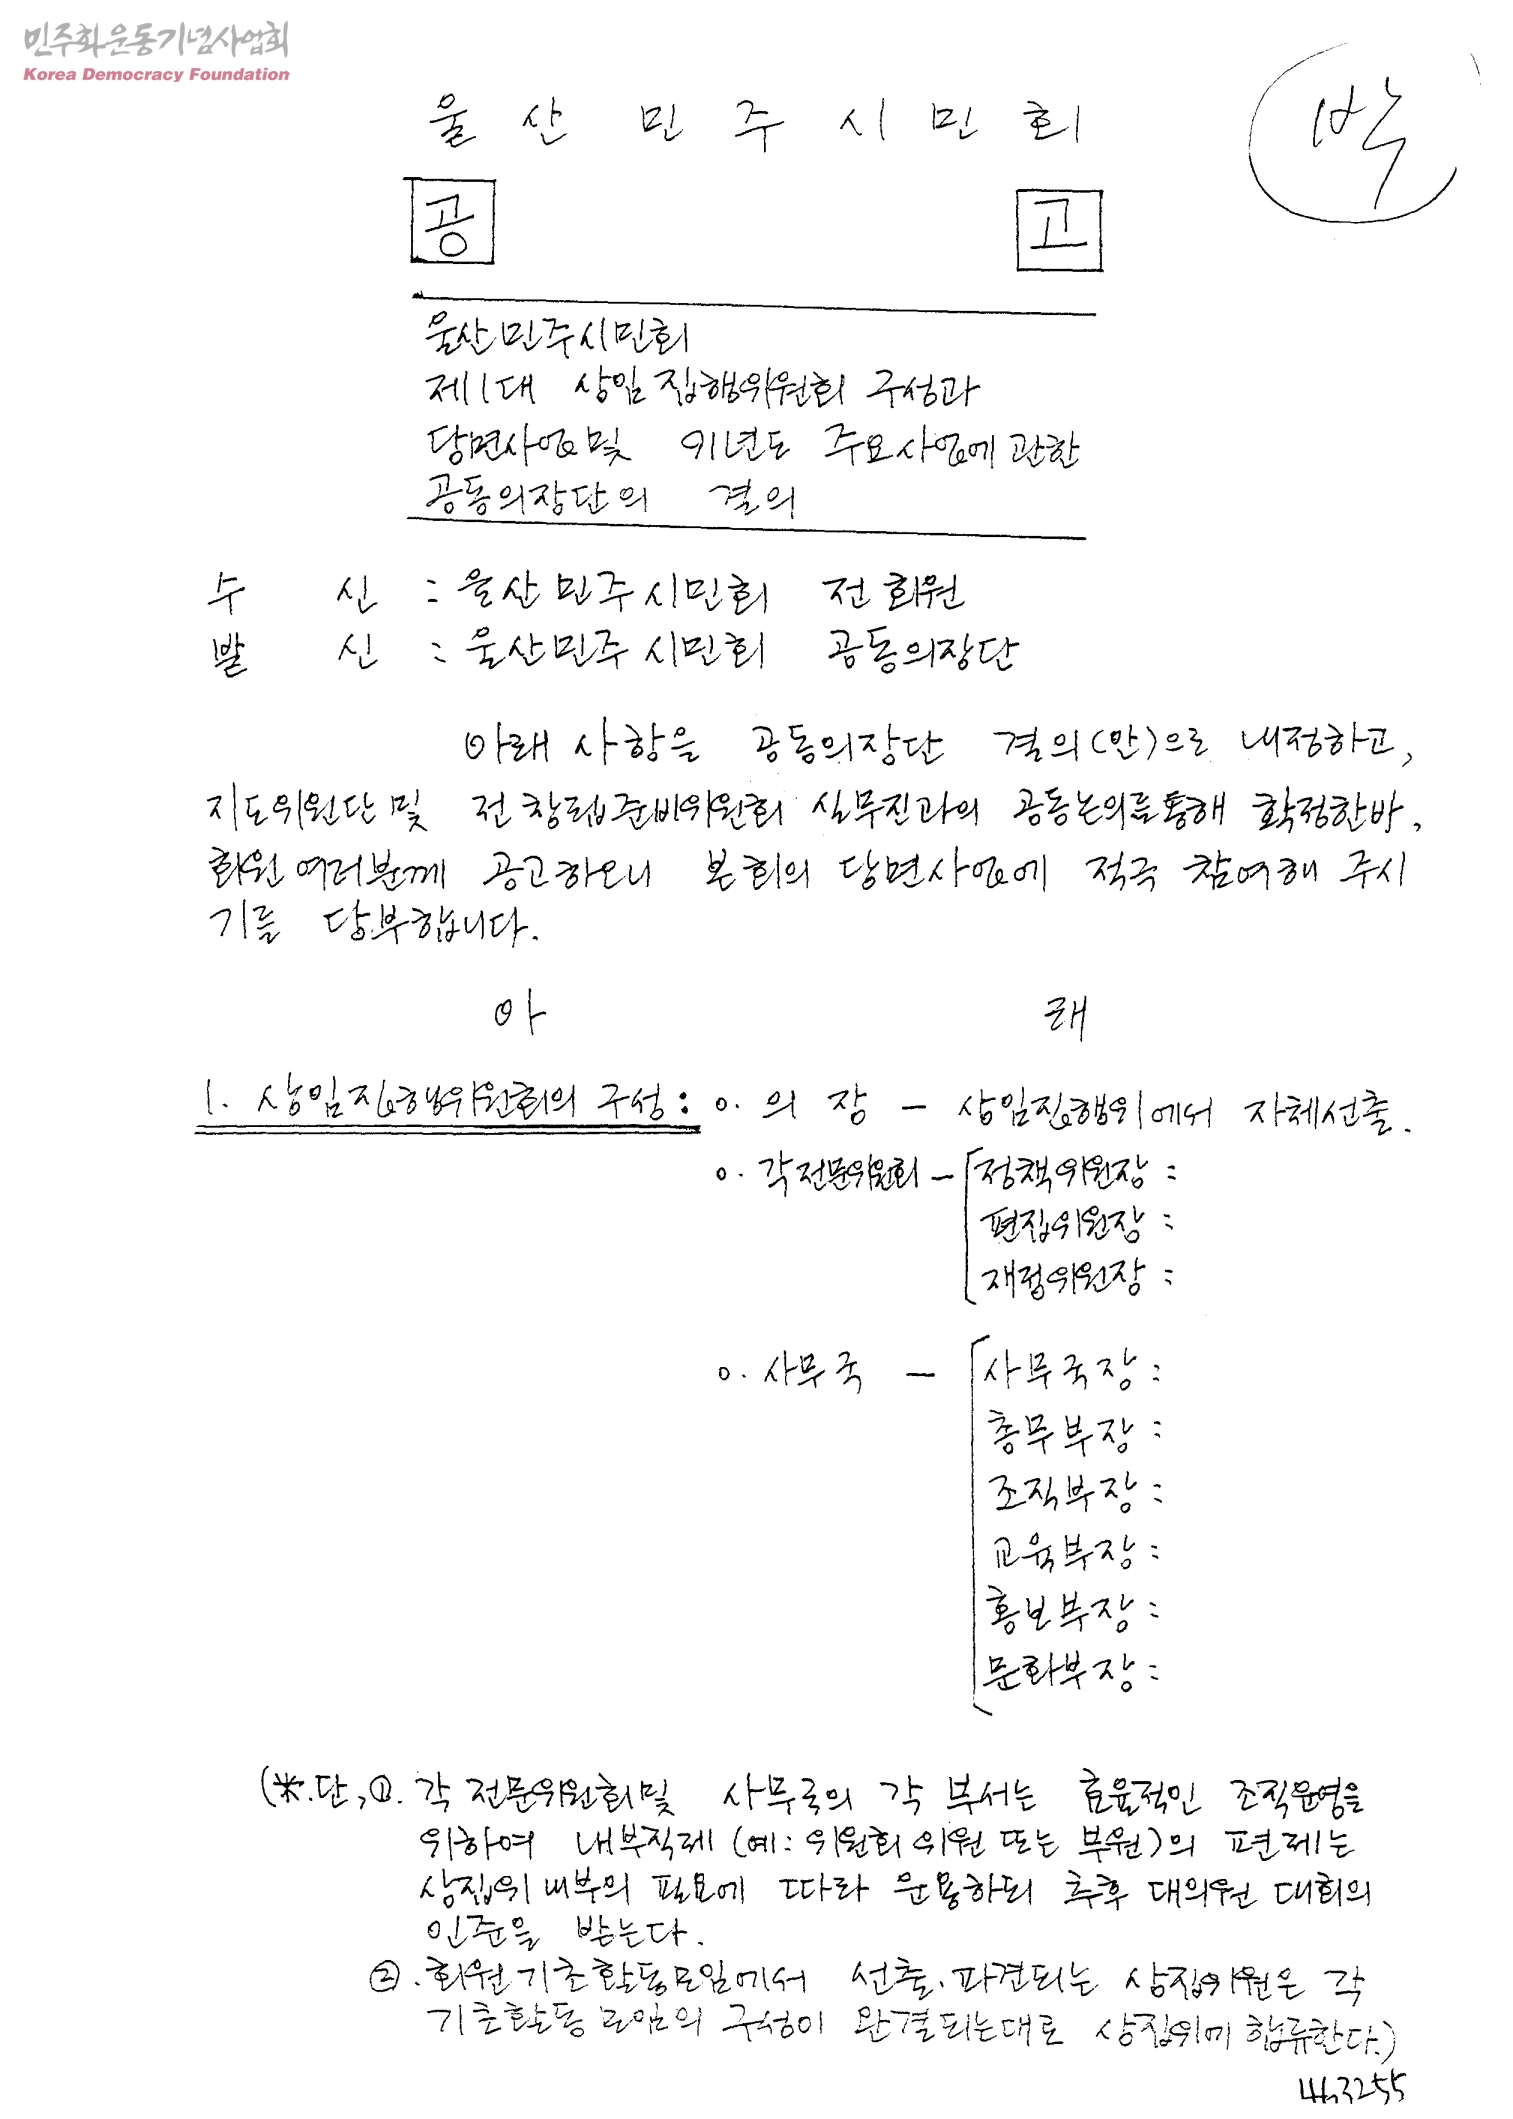 민주화운동기념사업회
Korea Democracy Foundation
박
울 산 민 주 시 민 회
공 고
울산민주시민회
제1대 상임집행위원회 구성과
당면사업및 91년도 주요사업에 관한
공동의장단의 결의
수 신 : 울산민주시민회 전회원
발 신 : 울산민주시민회 공동의장단
아래 사항을 공동의장단 결의(안)으로 내정하고,
지도위원단및 전창립준비위원회 실무진과의 공동논의를통해 확정한바,
회원여러분께 공고하오니 본회의 당면사업에 적극 참여해 주시
기를 당부합니다.
아 래
1. 상임집행위원회의 구성 : o. 의 장 - 상임집행위에서 자체선출.
o. 각전문위원회 - 정책위원장 :
편집위원장 :
재정위원장 :
o. 사무국 - 사무국장 :
총무부장 :
조직부장 :
교육부장 :
홍보부장 :
문화부장 :
(※.단, ①. 각 전문위원회및 사무국의 각 부서는 효율적인 조직운영을
위하여 내부직제 (예: 위원회 위원 또는 부원)의 편제는
상집위내부의 필요에 따라 운용하되 추후 대의원 대회의
인준을 받는다.
②. 회원기초활동모임에서 선출.파견되는 상집위원은 각
기초활동 모임의 구성이 완결되는대로 상집위에 합류한다.)
463255